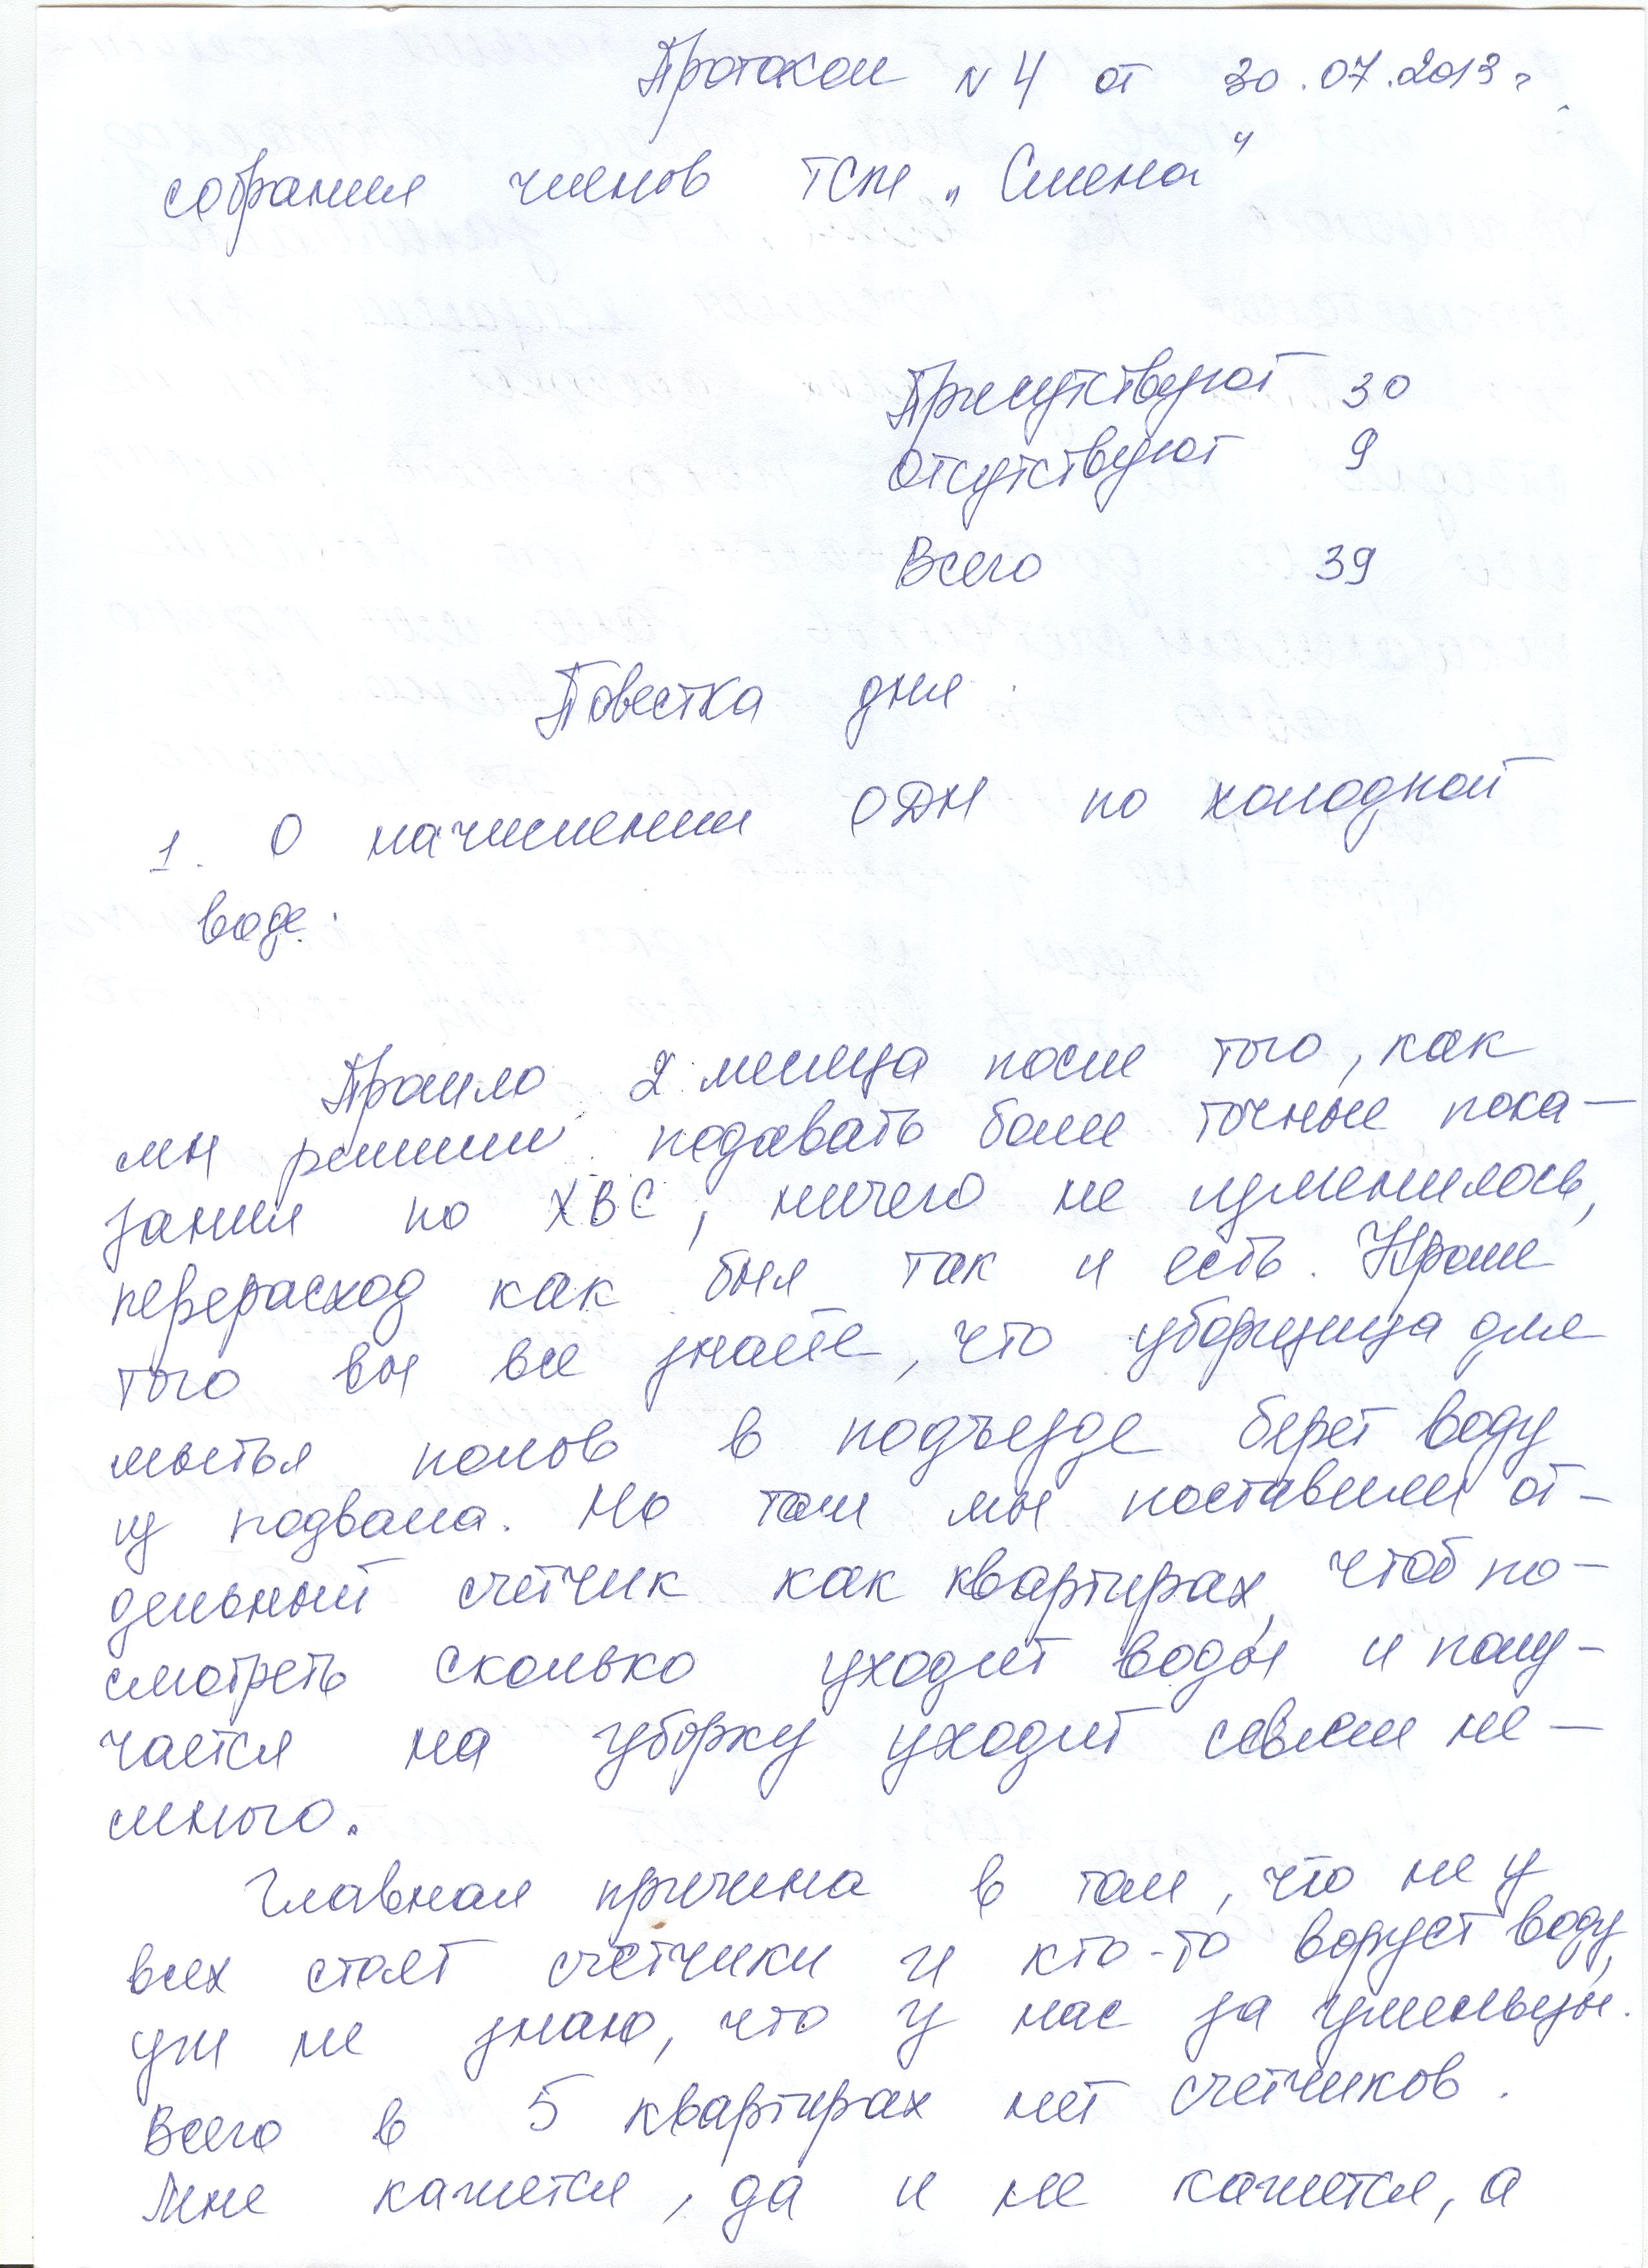 Протокол N 4 от 30.07.2013 г.
собрания членов ТСЖ „Смена"
Присутствуют 30
Отсутствуют 9
Всего 39
Повестка дня.
1. О начислении ОДН по холодной
воде.
Прошло 2 месяца после того, как
мы решили подавать более точные пока-
зания по ХВС, ничего не изменилось,
перерасход как был так и есть. Кроме
того вы все знаете, что уборщица для
мытья полов в подъезде берет воду
из подвала. Но там мы поставили от-
дельный счетчик как квартирах, чтоб по-
смотреть сколько уходит воды и полу-
чается на уборку уходит совсем не-
много.
Главная причина в том, что не у
всех стоят счетчики и кто-то ворует воду,
уж не знаю, что у нас за умельцы.
Всего в 5 квартирах нет счетчиков.
Мне кажется, да и не кажется, а